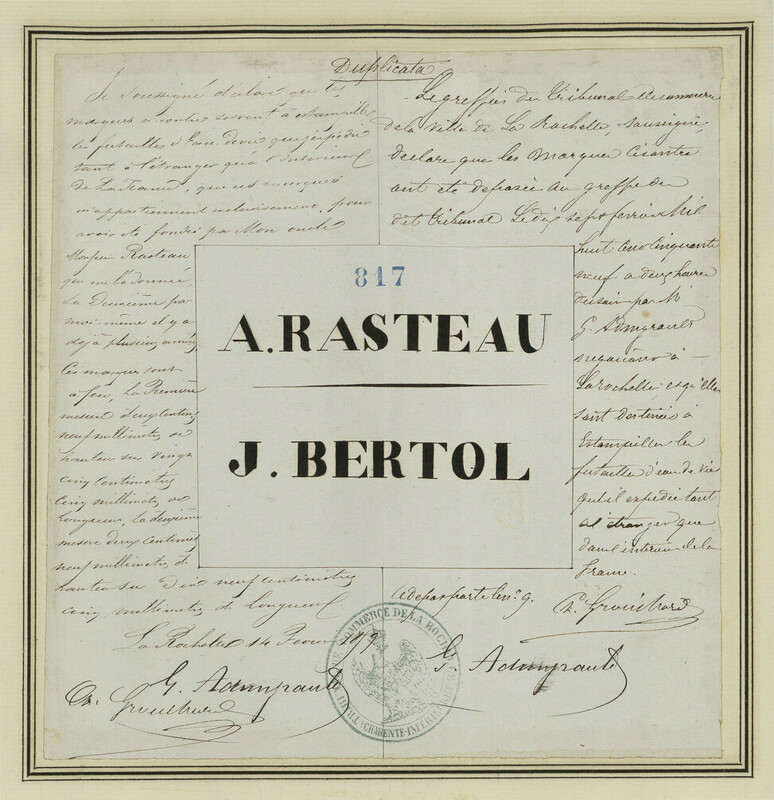 Duplicata
Je soussigné déclare que les
marques ci contre servent à estampiller
les futailles d'Eau de vie que j'expédie
tant à l'étranger qu'à l'intérieur
de La France, que ces marques
m'appartiennent exclusivement, pour
avoir été fondée par Mon oncle
Monsieur Rasteau
qui me l'a donnée,
La Deuxième par
moi-même il y a
déjà plusieurs années
Ces marques sont
à feu, La Première
mesure deux centim
neuf millimètres de
hauteur sur vingt
cinq centimètres
cinq millimètres de
Longueur, la deuxième
mesure deux centimètres
neuf millimètres de
hauteur sur Dix neuf centimètres
cinq millimètres de Longueur
La Rochelle 14 Février
G. Admyrauld
Le greffier du tribunal de commerce
de la ville de La Rochelle, soussigné,
déclare que les marques ci contre
ont été déposées au greffe du
dit tribunal Le dix sept février Mil
huit cent cinquante
neuf à deux heures
du soir par Mr
G. Admyrauld
négociant à
La Rochelle et qu'elles
sont destinées à
Estampiller les
futailles d'eau de vie
qu'il expédie tant
à l'étranger que
dans l'intérieur de la
France.
G. Admyrauld
817
A.RASTEAU
J. BERTOL
COMMERCE DE LA ROCHELLE
(CHARENTE-INFERIEURE)